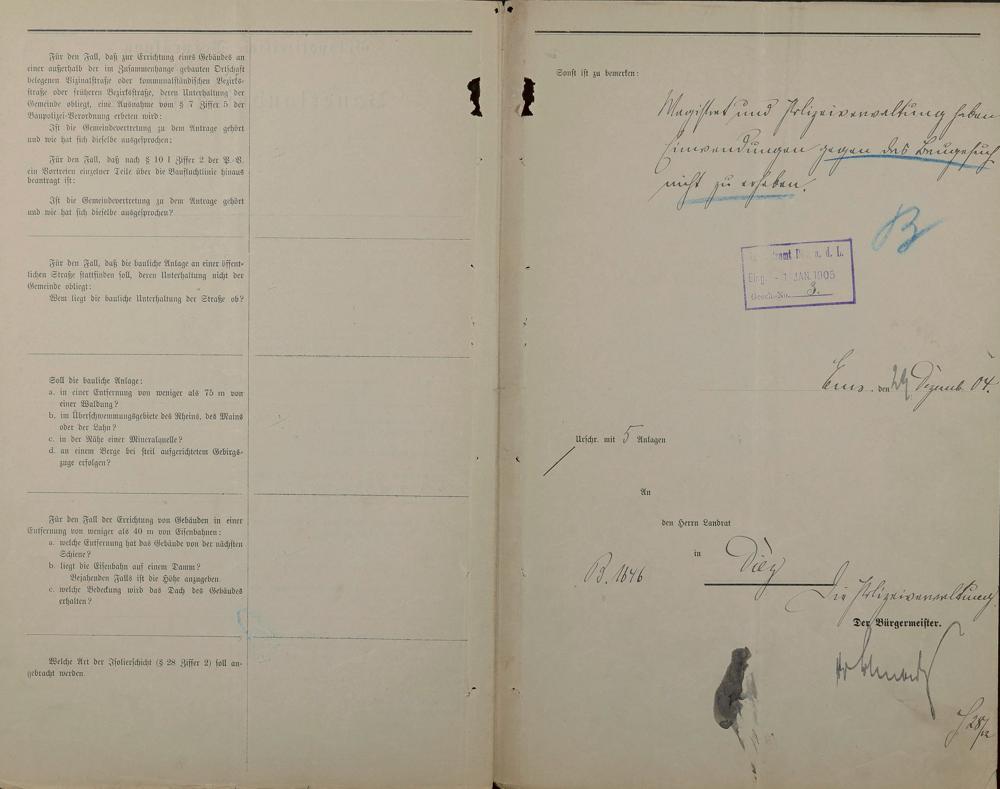 Für den Fall, daß zur Errichtung eines Gebäudes an
einer außerhalb der im Zusammenhange gebauten Ortschaft
belegenen Vizinalstraße oder kommunalständischen Bezirks-
straße oder früheren Bezirksstraße, deren Unterhaltung der
Gemeinde obliegt, eine Ausnahme vom § 7 Ziffer 5 der
Baupolizei-Verordnung erbeten wird:
Ist die Gemeindevertretung zu dem Antrage gehört
und wie hat sich dieselbe ausgesprochen:
Für den Fall, daß nach § 10 I Ziffer 2 der P.-V.
ein Vortreten einzelner Teile über die Baufluchtlinie hinaus
beantragt ist:
Ist die Gemeindevertretung zu dem Antrage gehört
und wie hat sich dieselbe ausgesprochen?
Für den Fall, daß die bauliche Anlage an einer öffent-
lichen Straße stattfinden soll, deren Unterhaltung nicht der
Gemeinde obliegt:
Wem liegt die bauliche Unterhaltung der Straße ob?
Soll die bauliche Anlage:
a. in einer Entfernung von weniger als 75 m von
einer Waldung?
b. im Überschwemmungsgebiete des Rheins, des Mains
oder der Lahn?
c. in der Nähe einer Mineralquelle?
d. an einem Berge bei steil aufgerichtetem Gebirgs-
zuge erfolgen?
Für den Fall der Errichtung von Gebäuden in einer
Entfernung von weniger als 40 m von Eisenbahnen:
a. welche Entfernung hat das Gebäude von der nächsten
Schiene?
b. liegt die Eisenbahn auf einem Damm?
Bejahenden Falls ist die Höhe anzugeben.
c. welche Bedeckung wird das Dach des Gebäudes
erhalten?
Welche Art der Isolierschicht (§ 28 Ziffer 2) soll an-
gebracht werden.
Sonst ist zu bemerken:
Magistrat und Polizeiverwaltung haben
Einwendungen gegen das Baugesuch
nicht zu erheben.
B
a. d. L.
Eing. - JAN. 1905
Gesch.-No. 3.
Ems, den 29. Dezemb. 04.
Urschr. mit 5 Anlagen
An
den Herrn Landrat
in Diez
B. 1846
Die Polizeiverwaltung
Der Bürgermeister.
28/12